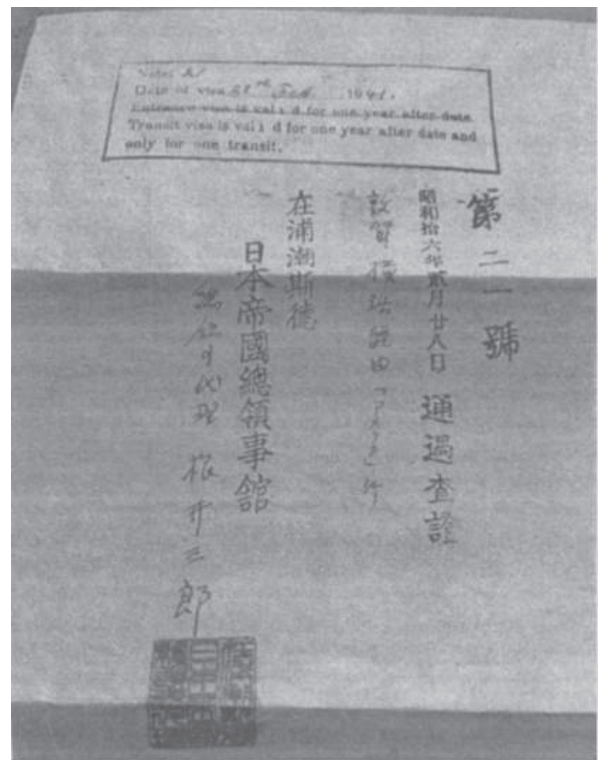 Date of visa 28th Feb. 1941.
Entrance visa is vali d for one year after date
Transit visa is vali d for one year after date and
only for one transit.
第二一號
昭和拾六年貳月廿八日 通過査證
敦賀 經由 行
在浦潮斯德
日本帝國總領事館
總領事代理 根井三郎